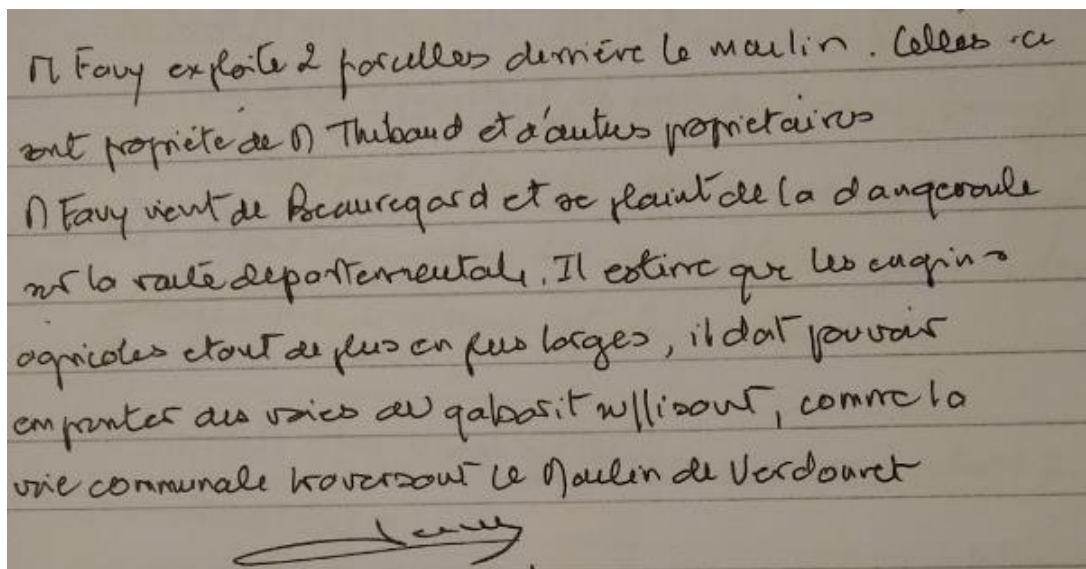 M Favy exploite 2 parcelles derrière le moulin. Celles-ci
sont propriété de M Thibaud et d'autres proprietaires
M Favy vient de Beauregard et se plaint de la dangerosité
sur la route departementale. Il estime que les engins
agricoles etant de plus en plus larges, il doit pouvoir
emprunter des voies au gabarit suffisant, comme la
voie communale traversant le Moulin de Verdouret